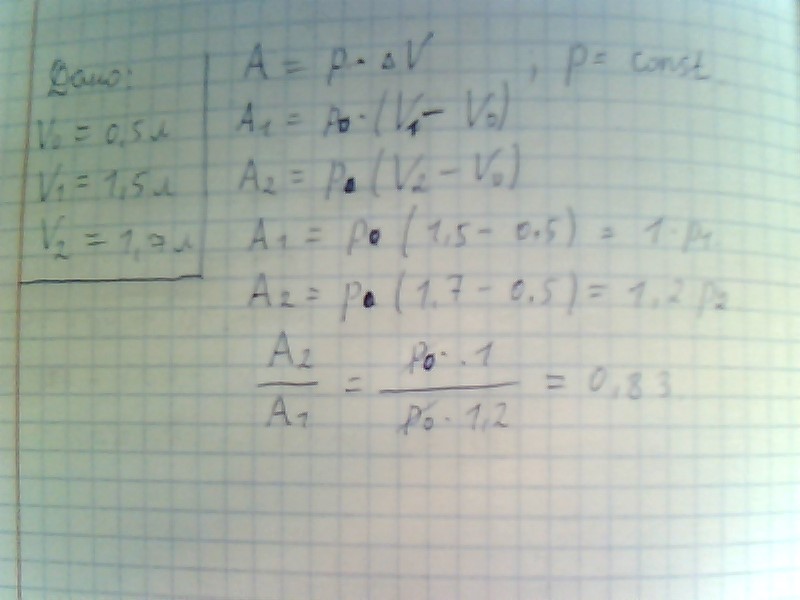 Дано:
V₀ = 0,5 л
V₁ = 1,5 л
V₂ = 1,7 л
A = p · ΔV ; p = const
A₁ = p₀ · (V₁ − V₀)
A₂ = p₀ (V₂ − V₀)
A₁ = p₀ (1,5 − 0,5) = 1 · p₁
A₂ = p₀ (1,7 − 0,5) = 1,2 p₂
A₂ / A₁ = p₀ · 1 / p₀ · 1,2 = 0,83